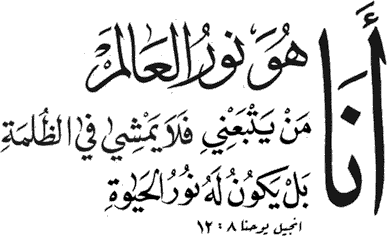 أَنَا
هُوَ نُورُ العَالَمِ
مَنْ يَتْبَعْنِي فَلَا يَمْشِي فِي الظُلمَةِ
بَلْ يَكُونُ لَهُ نُورُ الحَيٰوةِ
انجيل يوحنا ٨ : ١٢